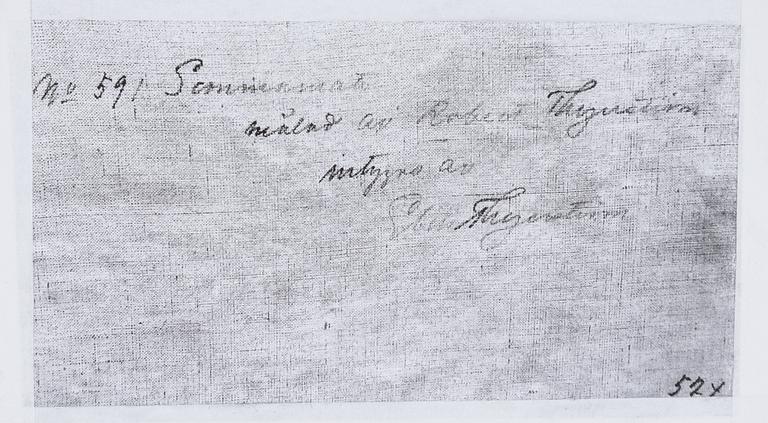 No 591 Sommarnatt
målad av Robert Thegerström
intygas av
Elin Thegerström
52x